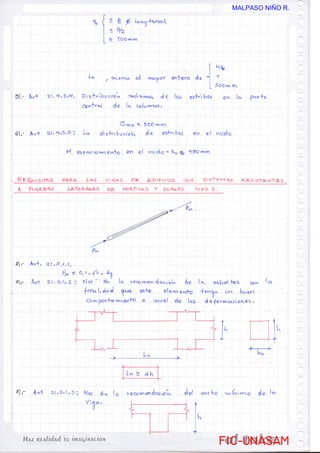 MALPASO NIÑO R.
≤ 8 ∅ Longitudinal
S₀ ≤ b/2
≤ 100mm
h/6
Lo , menor al mayor entero de
500mm
5).- Art 21.4.5.4. Distribución máxima de los estribos en la parte
central de la columna.
Smax = 300mm
6).- Art 21.4.5.5: La distribución de estribos en el nudo
el espaciamiento en el nudo = Sn ≤ 150mm
REQUISITOS PARA LAS VIGAS DE EDIFICIOS CON SISTEMAS RESISTENTES
A FUERZAS LATERALES DE PORTICOS Y DUALES TIPO II.
Pu
Pu
1).- Art. 21.5.1.1.
Pu ≤ 0.1 f'c Ag
2).- Art 21.5.1.2: Nos da la recomendación de la esbeltez con la
finalidad que este elemento tenga un buen
comportamiento a nivel de las deformaciones.
h
h
Ln
bw
Ln ≥ 4h
3).- Art 21.5.1.3: Nos da la recomendación del ancho mínimo de la
viga.
h
Haz realidad tu imaginacion
FIC-UNASAM